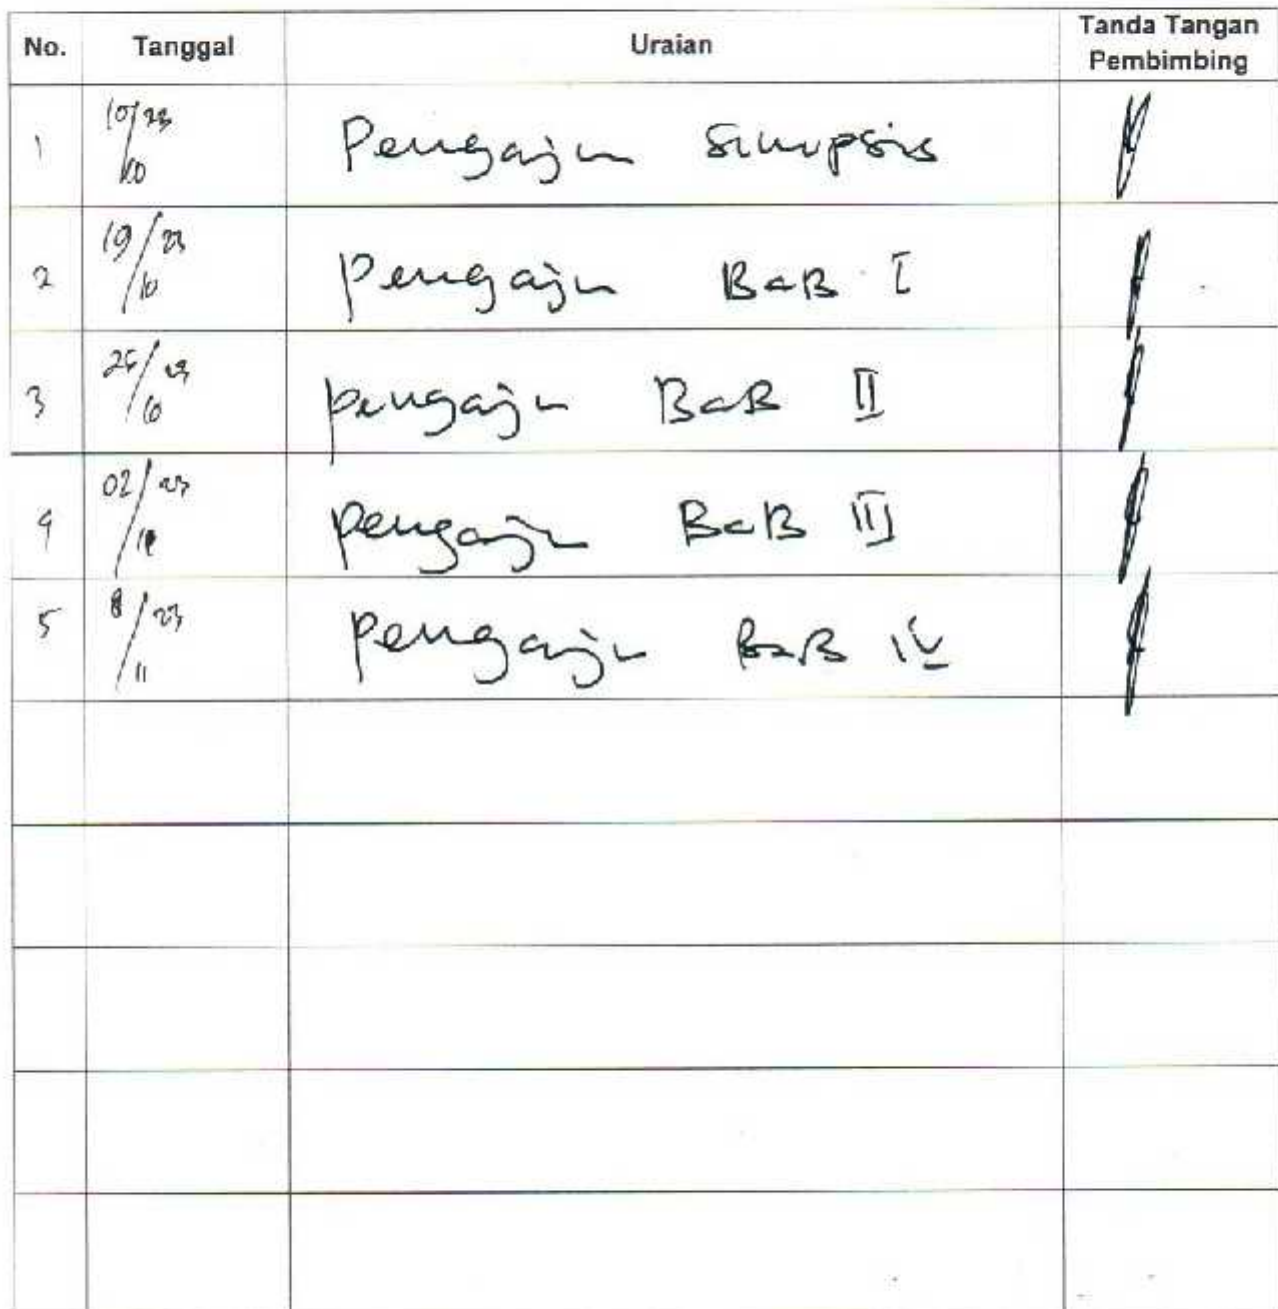 No. Tanggal Uraian Tanda Tangan
Pembimbing
1 10/23 Pengajun Sinopsis
10
2 19/23 Pengajun BAB I
10
3 25/23 pengajun BAB II
10
4 02/23 pengajun BAB III
5 8/23 pengajun BAB IV
11